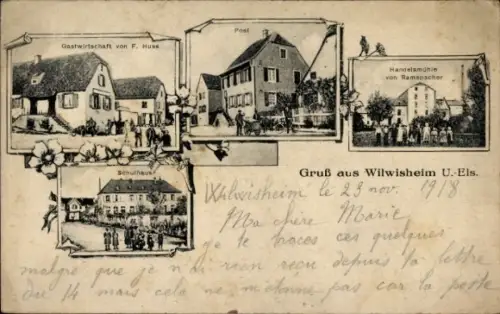 Gastwirtschaft von F. Huss
Post
Handelsmühle
von Ramspacher
Schulhaus
Gruß aus Wilwisheim U.-Els.
Wilwisheim le 23 nov. 1918
Ma chère Marie
je te traces ces quelques
malgré que je n'ai rien reçu depuis ta lettre
du 14 mais cela ne m'étonne pas car la poste